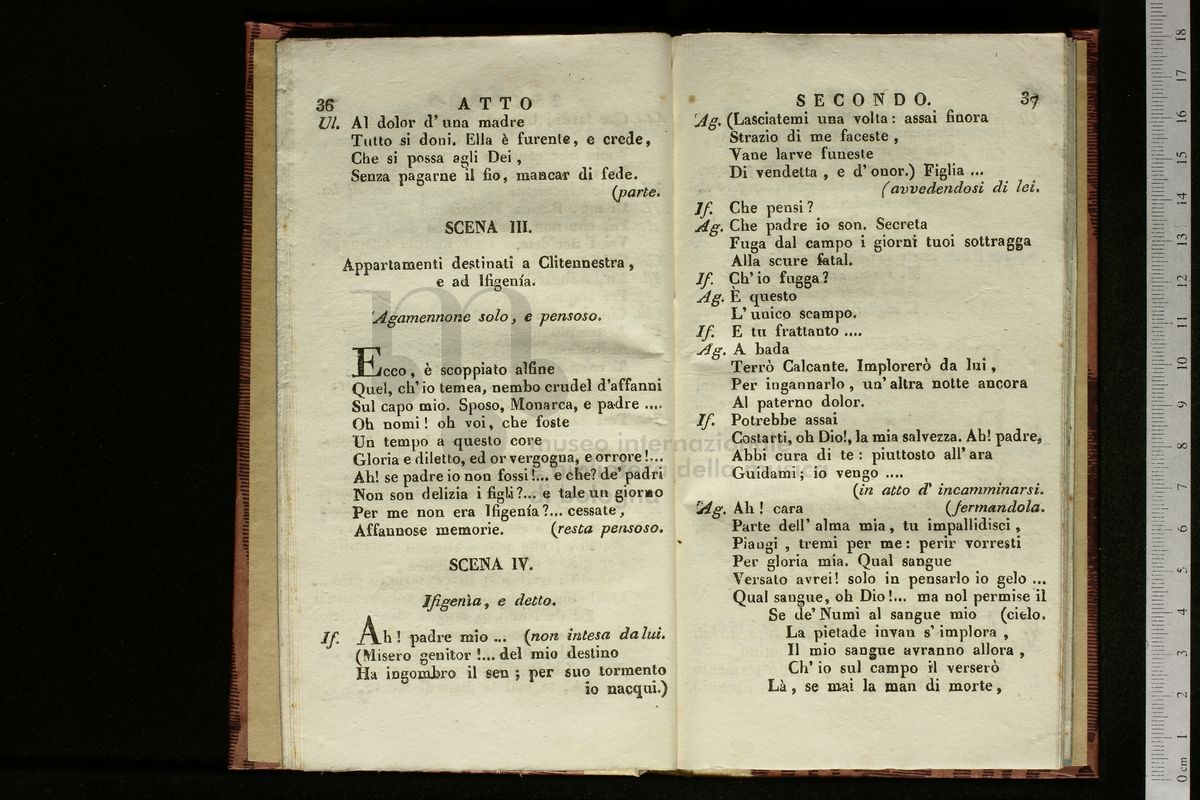 36 ATTO
Ul. Al dolor d' una madre
Tutto si doni. Ella è furente, e crede,
Che si possa agli Dei,
Senza pagarne il fio, mancar di fede.
(parte.
SCENA III.
Appartamenti destinati a Clitennestra,
e ad Ifigenía.
Agamennone solo, e pensoso.
Ecco, è scoppiato alfine
Quel, ch' io temea, nembo crudel d'affanni
Sul capo mio. Sposo, Monarca, e padre ....
Oh nomi! oh voi, che foste
Un tempo a questo core
Gloria e diletto, ed or vergogna, e orrore!...
Ah! se padre io non fossi!... e che? de' padri
Non son delizia i figli?... e tale un giorno
Per me non era Ifigenía?... cessate,
Affannose memorie. (resta pensoso.
SCENA IV.
Ifigenìa, e detto.
If. Ah! padre mio ... (non intesa da lui.
(Misero genitor!... del mio destino
Ha ingombro il sen; per suo tormento
io nacqui.)
SECONDO. 37
Ag. (Lasciatemi una volta: assai finora
Strazio di me faceste,
Vane larve funeste
Di vendetta, e d' onor.) Figlia ...
(avvedendosi di lei.
If. Che pensi?
Ag. Che padre io son. Secreta
Fuga dal campo i giorni tuoi sottragga
Alla scure fatal.
If. Ch' io fugga?
Ag. È questo
L' unico scampo.
If. E tu frattanto ....
Ag. A bada
Terrò Calcante. Implorerò da lui,
Per ingannarlo, un' altra notte ancora
Al paterno dolor.
If. Potrebbe assai
Costarti, oh Dio!, la mia salvezza. Ah! padre,
Abbi cura di te: piuttosto all' ara
Guidami; io vengo ....
(in atto d' incamminarsi.
Ag. Ah! cara (fermandola.
Parte dell' alma mia, tu impallidisci,
Piangi, tremi per me: perir vorresti
Per gloria mia. Qual sangue
Versato avrei! solo in pensarlo io gelo ...
Qual sangue, oh Dio!... ma nol permise il
Se de' Numi al sangue mio (cielo.
La pietade invan s' implora,
Il mio sangue avranno allora,
Ch' io sul campo il verserò
Là, se mai la man di morte,
museo internazionale
e biblioteca della musica
di bologna
0 cm 1 2 3 4 5 6 7 8 9 10 11 12 13 14 15 16 17 18